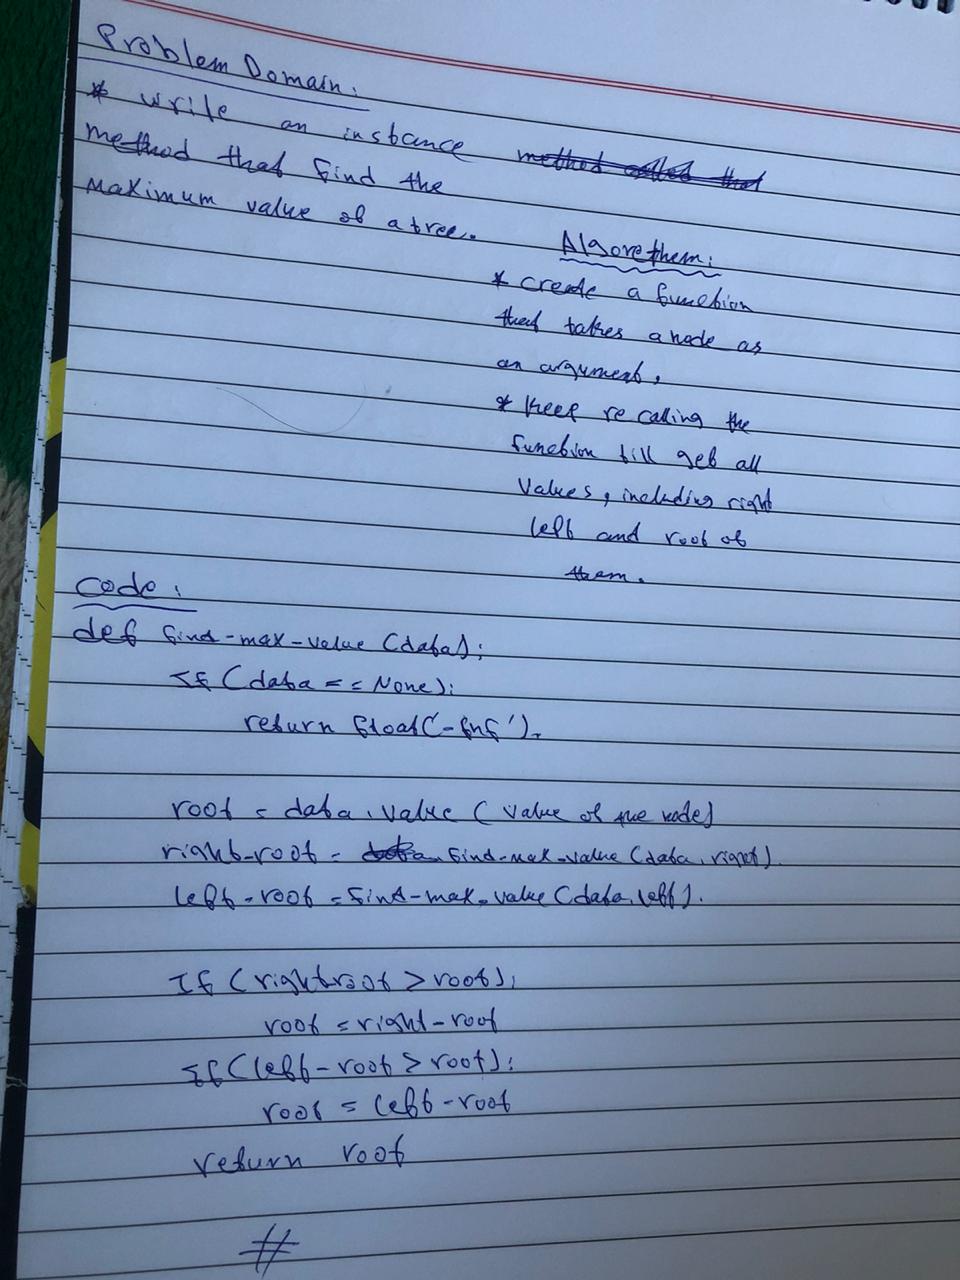 Problem Domain:
* write an instance
method that find the
maximum value of a tree.
Algorethem:
* create a function
that takes a node as
an argument.
* Keep re calling the
function till get all
values, including right
left and root of
them.
Code:
def find-max-value (data):
If (data == None):
return float(-inf').
root = data.value (value of the node)
right-root = find-max-value (data.right).
left-root = find-max-value (data.left).
If (rightroot > root):
root = right-root
If (left-root > root):
root = left-root
return root
#